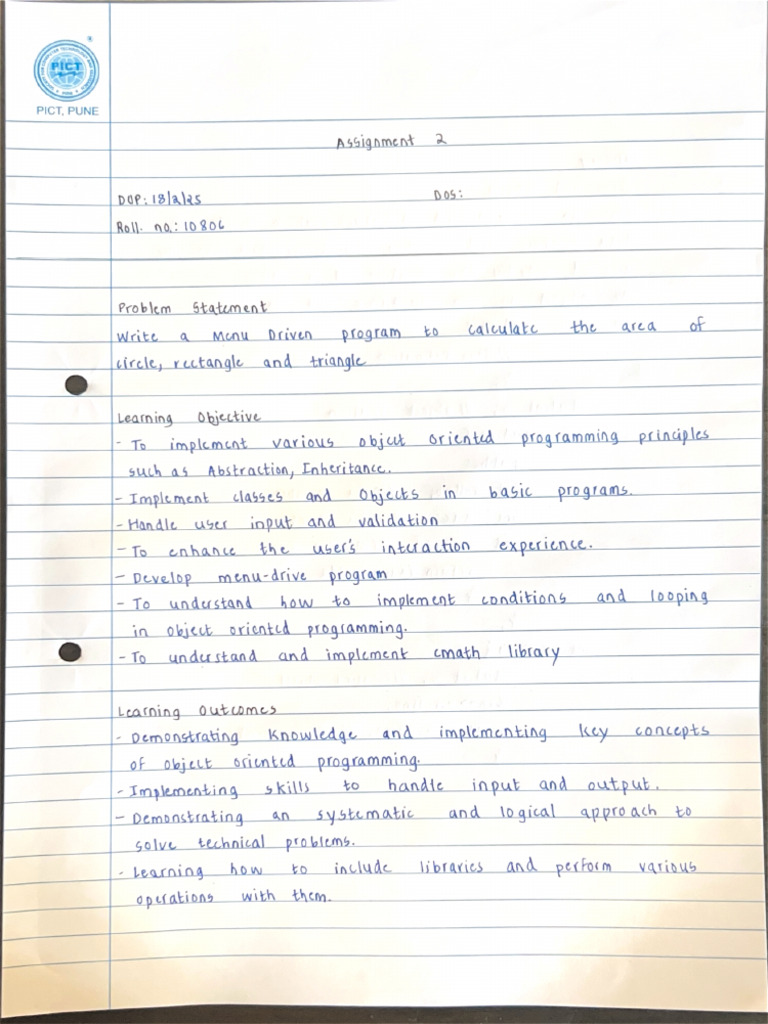 PICT
PICT, PUNE
Assignment 2
DOP: 18/2/25 DOS:
Roll. no.: 10806
Problem Statement
Write a Menu Driven program to calculate the area of
circle, rectangle and triangle
Learning Objective
- To implement various object oriented programming principles
such as Abstraction, Inheritance.
- Implement classes and Objects in basic programs.
- Handle user input and validation
- To enhance the user's interaction experience.
- Develop menu-drive program
- To understand how to implement conditions and looping
in object oriented programming.
- To understand and implement cmath library
Learning Outcomes
- Demonstrating knowledge and implementing key concepts
of object oriented programming.
- Implementing skills to handle input and output.
- Demonstrating an systematic and logical approach to
solve technical problems.
- Learning how to include libraries and perform various
operations with them.